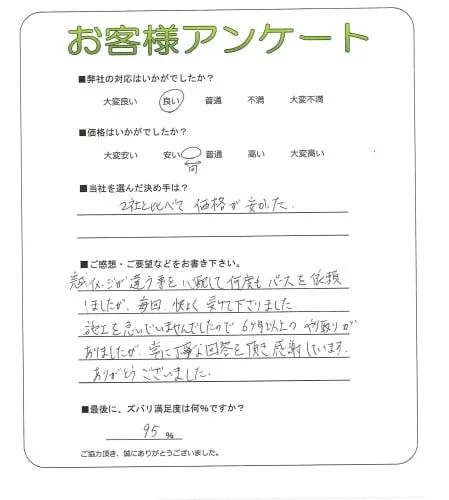 お客様アンケート
■弊社の対応はいかがでしたか？
大変良い 良い 普通 不満 大変不満
■価格はいかがでしたか？
大変安い 安い 普通 高い 大変高い
間
■当社を選んだ決め手は？
2社と比べて 価格が安かった.
■ご感想・ご要望などをお書き下さい。
イメージが違う事を心配して何度もパースを依頼
しましたが、毎回、快よく受けて下さりました.
施工を急いでいませんでしたので6ヶ月以上のやり取りが
ありましたが、常に丁寧な回答を頂き感謝しています.
ありがとうございました.
■最後に、ズバリ満足度は何%ですか？
95 %
ご協力頂き、誠にありがとうございました。